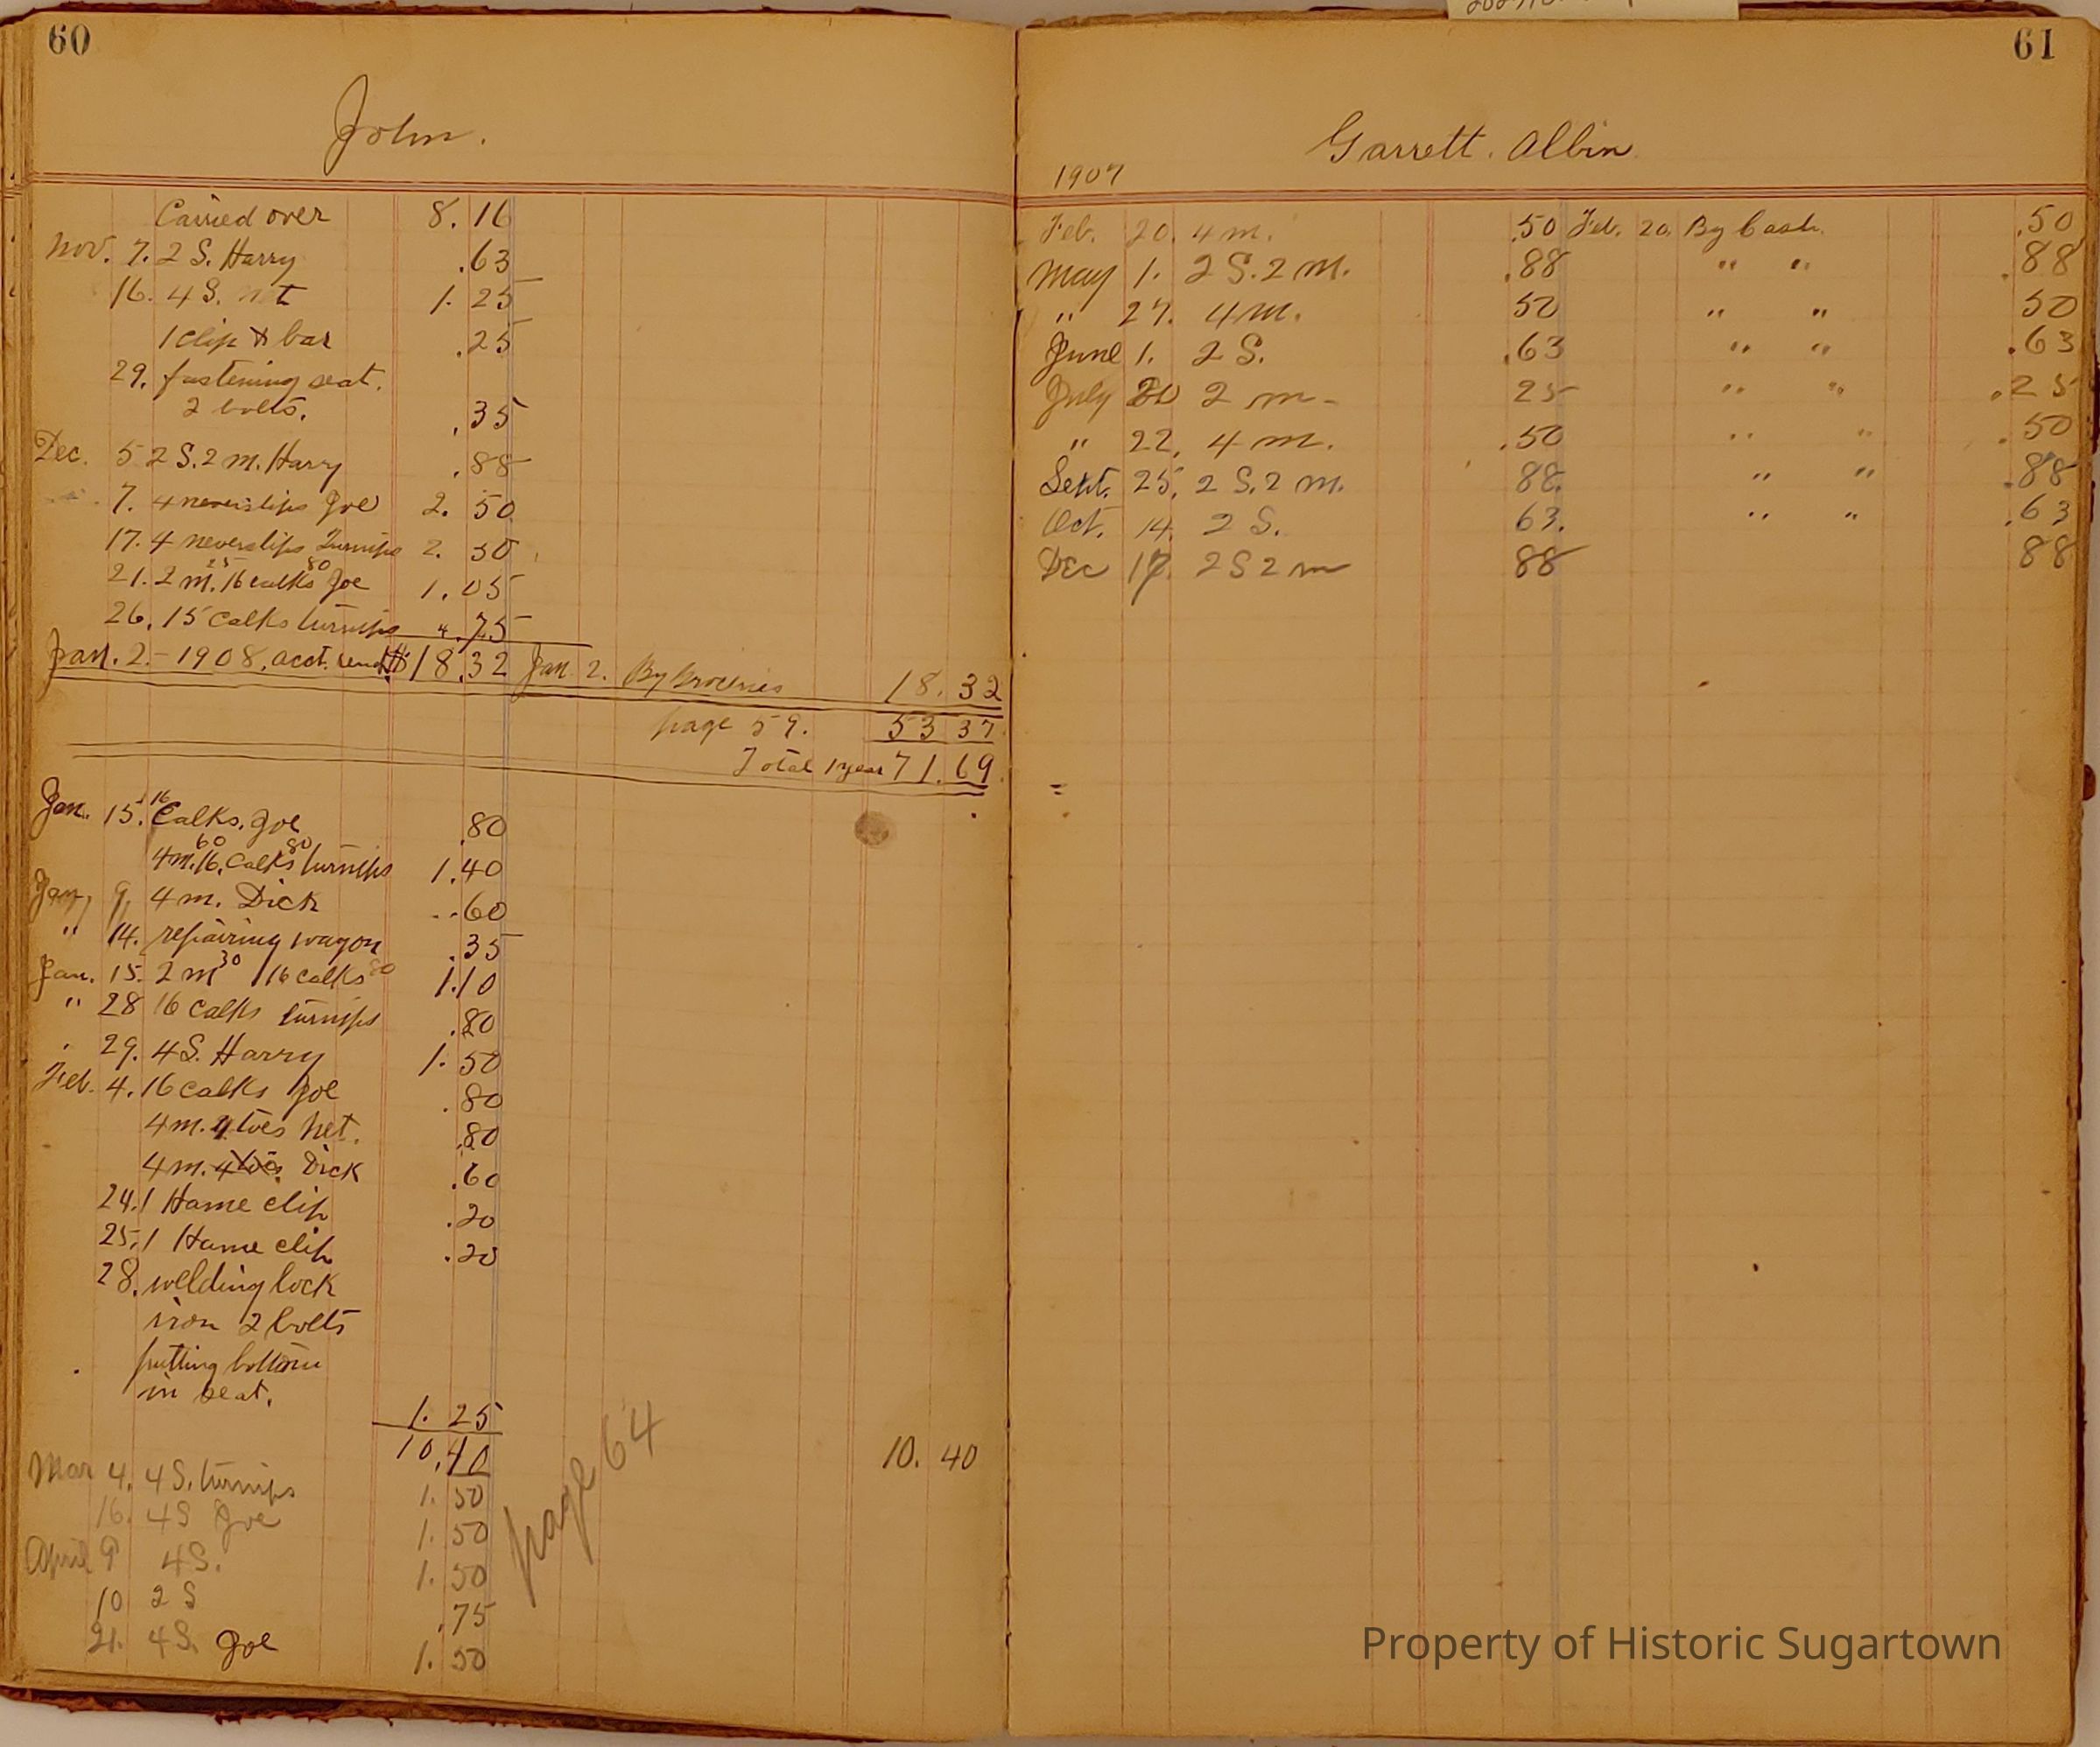 60
John.
Carried over 8.16
Nov. 7. 2 S. Harry .63
16. 4 S. net 1.25
1 clip & bar .25
29. fastening seat.
2 bolts. .35
Dec. 5 2 S. 2 m. Harry .88
7. 4 neverslips Joe 2.50
17. 4 neverslips Turnips 2.50
25 80
21. 2 m. 16 calks Joe 1.05
26. 15 Calks turnips .75
Jan. 2. - 1908. acct. rend. $18.32 Jan 2. By Groceries 18.32
page 59. 53 37
Total 1 year 71.69
16
Jan. 15. Calks. Joe .80
60 80
4m. 16. Calks turnips 1.40
Jany 9, 4 m. Dick .60
" 14. repairing wagon .35
Jan. 15. 2 m 30 16 calks 80 1.10
" 28 16 calks turnips .80
29. 4 S. Harry 1.50
Feb. 4. 16 calks Joe .80
4 m. 4 toes net. .80
4 m. 4 toes Dick .60
24. 1 Hame clip .20
25. 1 Hame clip .20
28. welding lock
iron 2 bolts
putting bottom
in seat. 1.25
10.40 10.40
Mar 4. 4 S. turnips 1.50
16. 4 S Joe 1.50
April 9 4 S. 1.50
10 2 S .75
21. 4 S. Joe 1.50
page 64
61
Garrett. Albin
1907
Feb. 20. 4 m. .50 Feb. 20. By Cash. .50
May 1. 2 S. 2 m. .88 " " .88
" 27. 4 m. 50 " " 50
June 1. 2 S. .63 " " .63
July 20 2 m - 25 " " .25
" 22, 4 m. .50 " " .50
Sept. 25. 2 S. 2 m. 88. " " .88
Oct. 14. 2 S. 63. " " .63
Dec 17. 2 S 2 m 88 88
Property of Historic Sugartown